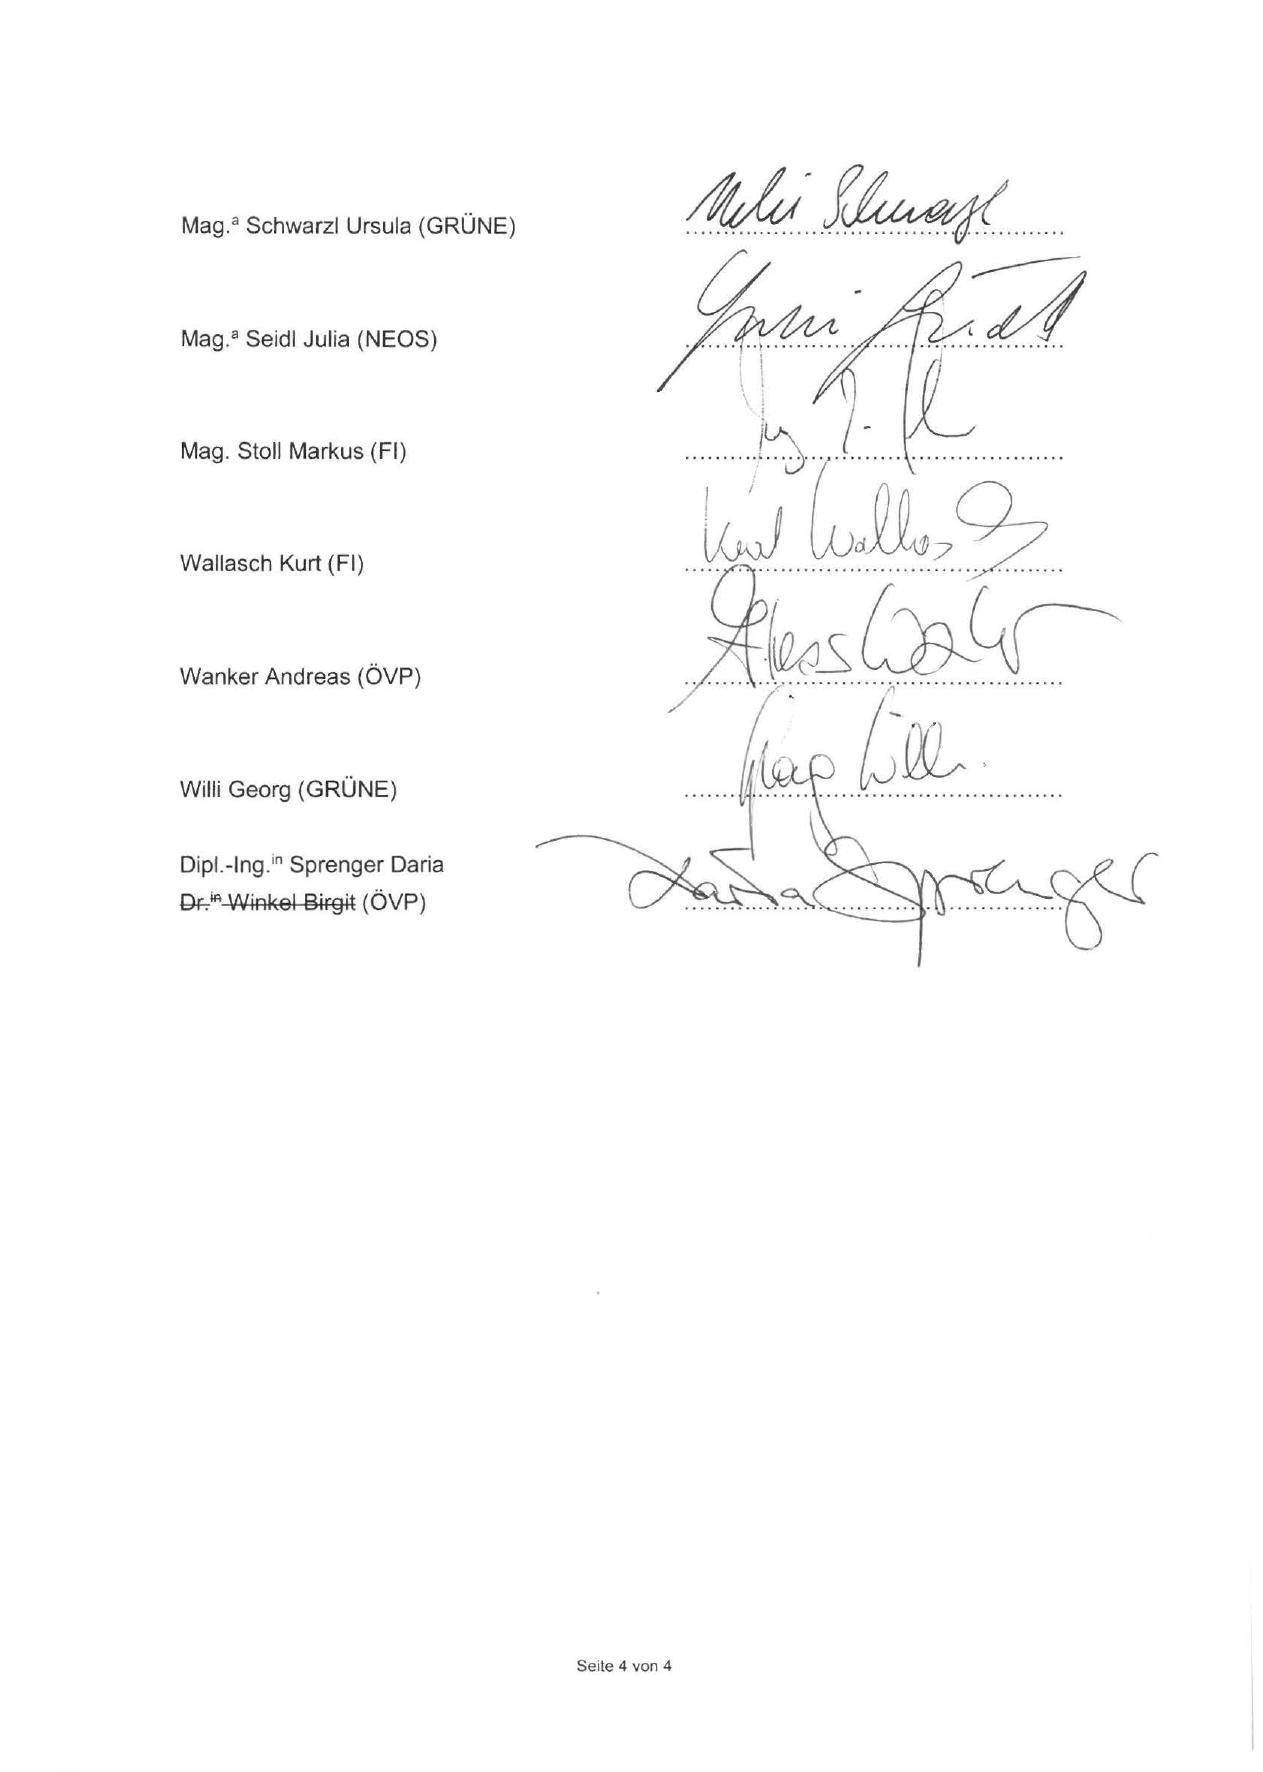 Mag.ª Schwarzl Ursula (GRÜNE) Schwarzl
Mag.ª Seidl Julia (NEOS) Julia Seidl
Mag. Stoll Markus (FI)
Wallasch Kurt (FI) Kurt
Wanker Andreas (ÖVP)
Willi Georg (GRÜNE) Georg Willi
Dipl.-Ing.ⁱⁿ Sprenger Daria
Dr.ⁱⁿ Winkel Birgit (ÖVP) Daria Sprenger
Seite 4 von 4